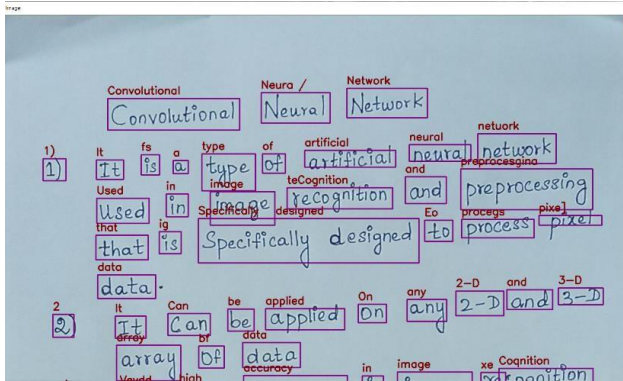 Image
Convolutional Neura / Network
Convolutional Neural Network
1) It fs a type of artificial neural netuork
1) It is a type of artificial neural network
Used in image teCognition and preprocesgina
Used in image recognition and preprocessing
that ig Specifically designed Eo procegs pixe]
that is Specifically designed to process pixel
data
data.
2 It Can be applied On any 2-D and 3-D
2) It Can be applied On any 2-D and 3-D
array bf data
array Of data
high accuracy in image xe Coqnition
in